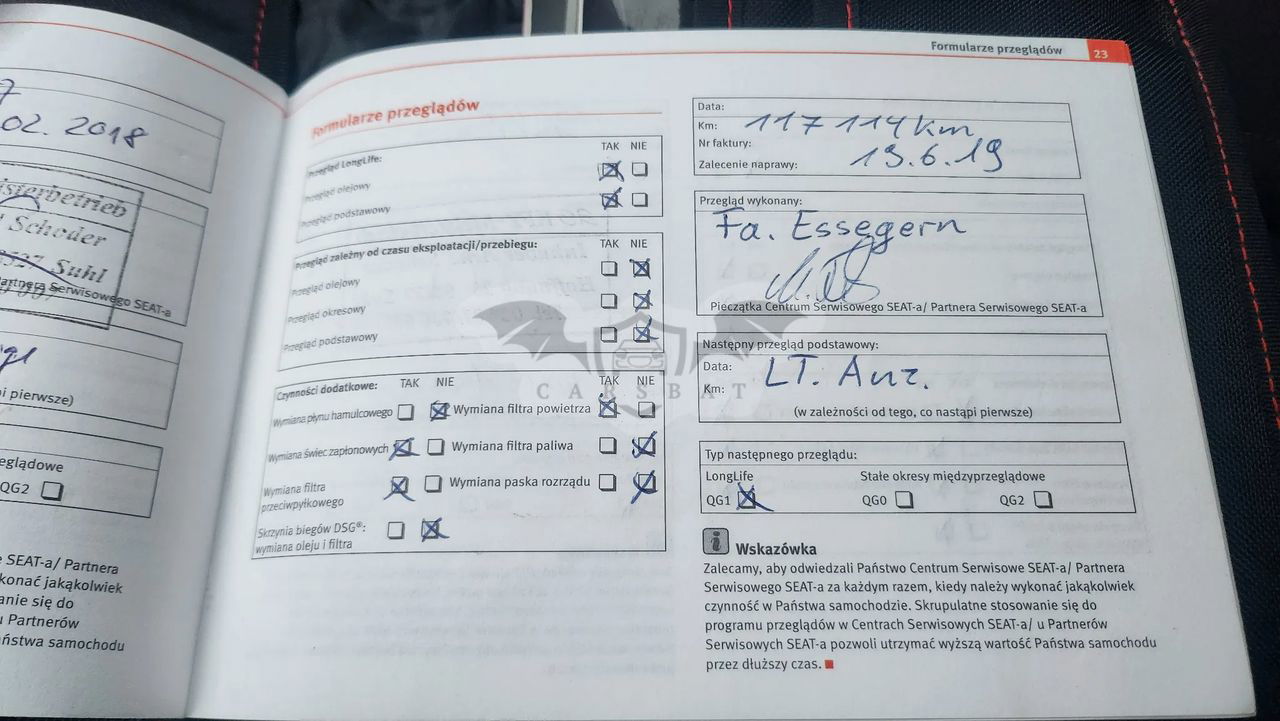 7
.02. 2018
isterbetrieb
Schoder
Suhl
Partnera Serwisowego SEAT-a
pi pierwsze)
eglądowe
QG2
e SEAT-a/ Partnera
konać jakąkolwiek
anie się do
u Partnerów
aństwa samochodu
Formularze przeglądów 23
Formularze przeglądów
TAK NIE
Przegląd LongLife:
Przegląd olejowy
Przegląd podstawowy
TAK NIE
Przegląd zależny od czasu eksploatacji/przebiegu:
Przegląd olejowy
Przegląd okresowy
Przegląd podstawowy
Czynności dodatkowe: TAK NIE TAK NIE
Wymiana płynu hamulcowego Wymiana filtra powietrza
Wymiana świec zapłonowych Wymiana filtra paliwa
Wymiana filtra przeciwpyłkowego Wymiana paska rozrządu
Skrzynia biegów DSG®:
wymiana oleju i filtra
Data:
Km: 117 114 km
Nr faktury:
Zalecenie naprawy: 19.6.19
Przegląd wykonany:
Fa. Essegern
Pieczątka Centrum Serwisowego SEAT-a/ Partnera Serwisowego SEAT-a
Następny przegląd podstawowy:
Data: LT. Anz.
Km:
(w zależności od tego, co nastąpi pierwsze)
Typ następnego przeglądu:
LongLife Stałe okresy międzyprzeglądowe
QG1 QG0 QG2
Wskazówka
Zalecamy, aby odwiedzali Państwo Centrum Serwisowe SEAT-a/ Partnera
Serwisowego SEAT-a za każdym razem, kiedy należy wykonać jakąkolwiek
czynność w Państwa samochodzie. Skrupulatne stosowanie się do
programu przeglądów w Centrach Serwisowych SEAT-a/ u Partnerów
Serwisowych SEAT-a pozwoli utrzymać wyższą wartość Państwa samochodu
przez dłuższy czas.
CARSBAT